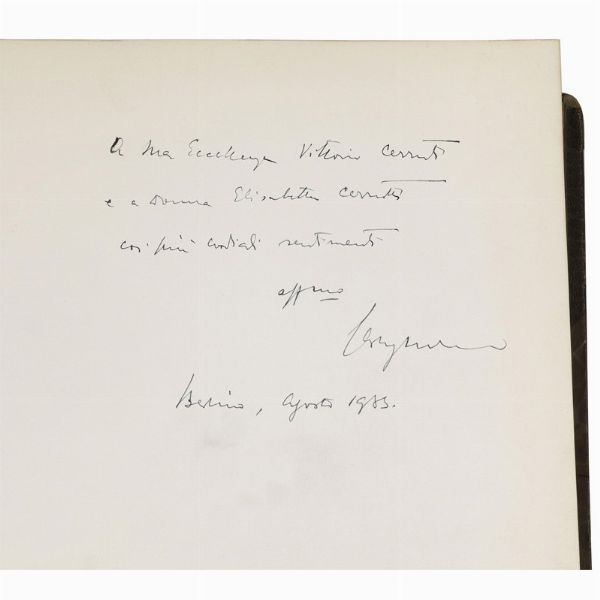 A Sua Eccellenza Vittorio Cerruti
e a Donna Elisabetta Cerruti
coi più cordiali sentimenti
affmo
Berlino, Agosto 1933.